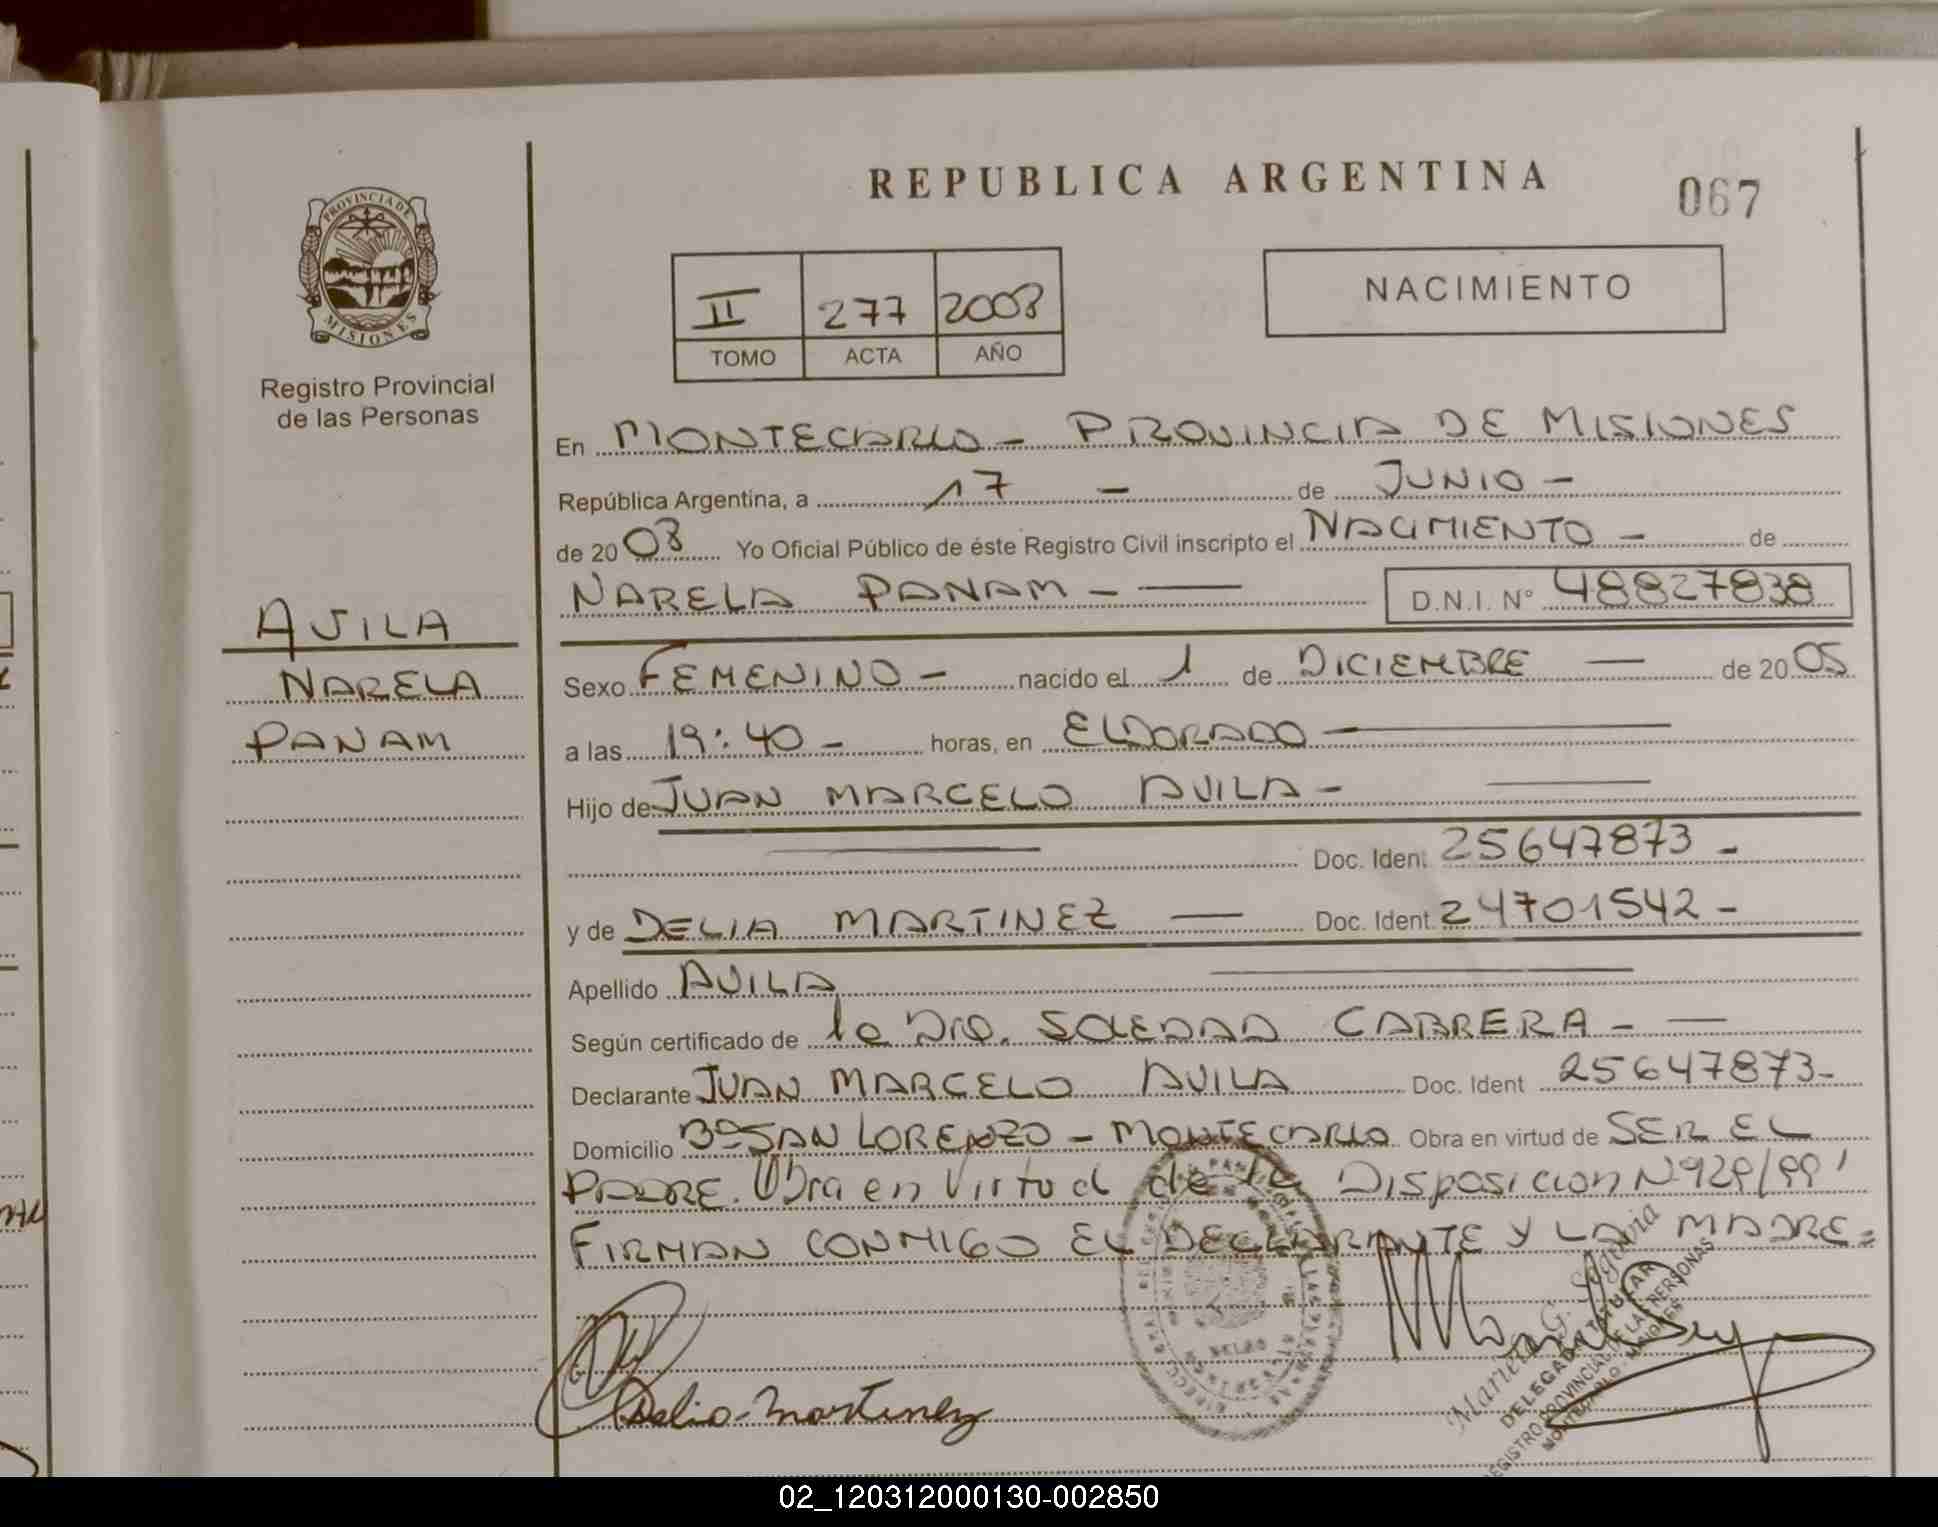 REPUBLICA ARGENTINA
067
PROVINCIA DE
MISIONES
Registro Provincial
de las Personas
II 277 2008
TOMO ACTA AÑO
NACIMIENTO
En MONTECARLO - PROVINCIA DE MISIONES
República Argentina, a 17 - de JUNIO -
de 2008 Yo Oficial Público de éste Registro Civil inscripto el NACIMIENTO - de
NARELA PANAM - D.N.I. N° 48827838
AVILA
NARELA
PANAM
Sexo FEMENINO - nacido el 1 de DICIEMBRE — de 2005
a las 19:40 - horas, en ELDORADO
Hijo de JUAN MARCELO AVILA -
Doc. Ident 25647873 -
y de DELIA MARTINEZ — Doc. Ident. 24701542 -
Apellido AVILA
Según certificado de la Dra. SOLEDAD CABRERA -
Declarante JUAN MARCELO AVILA Doc. Ident 25647873-
Domicilio Bº SAN LORENZO - MONTECARLO Obra en virtud de SER EL
PADRE. Obra en Virtud de la Disposicion Nº 929/99'
FIRMAN CONMIGO EL DECLARANTE Y LA MADRE=
Delia Martinez
DELEGADA TITULAR
REGISTRO PROVINCIAL DE LAS PERSONAS
MONTECARLO - MISIONES
02_120312000130-002850